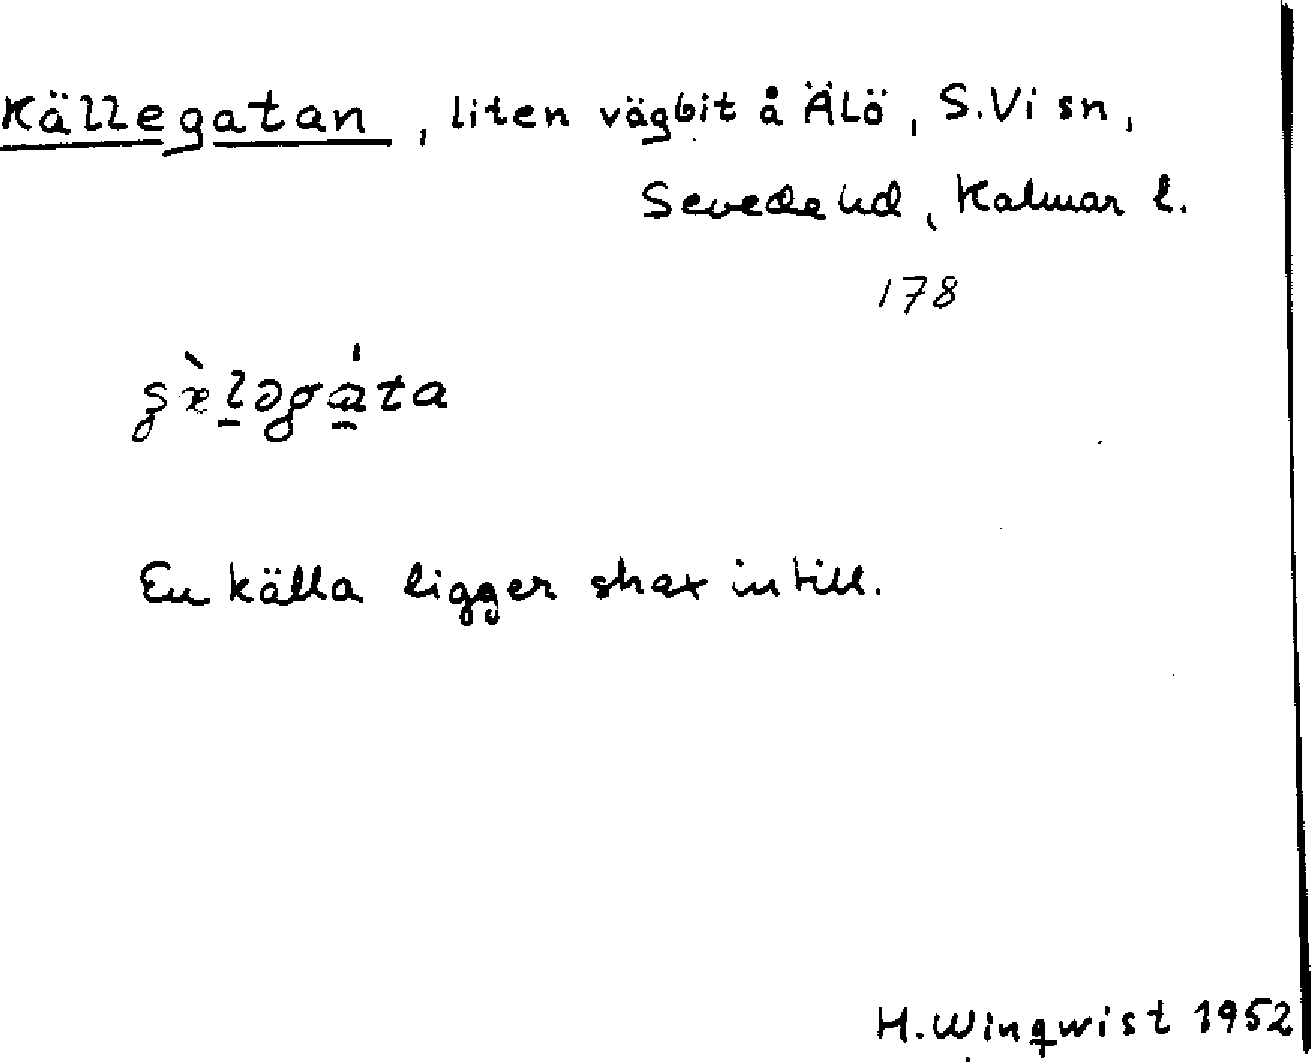 Källegatan, liten vägbit å Älö, S.Vi sn,
Sevede hd, Kalmar l.
178
En källa ligger strax intill.
H. Winqwist 1952